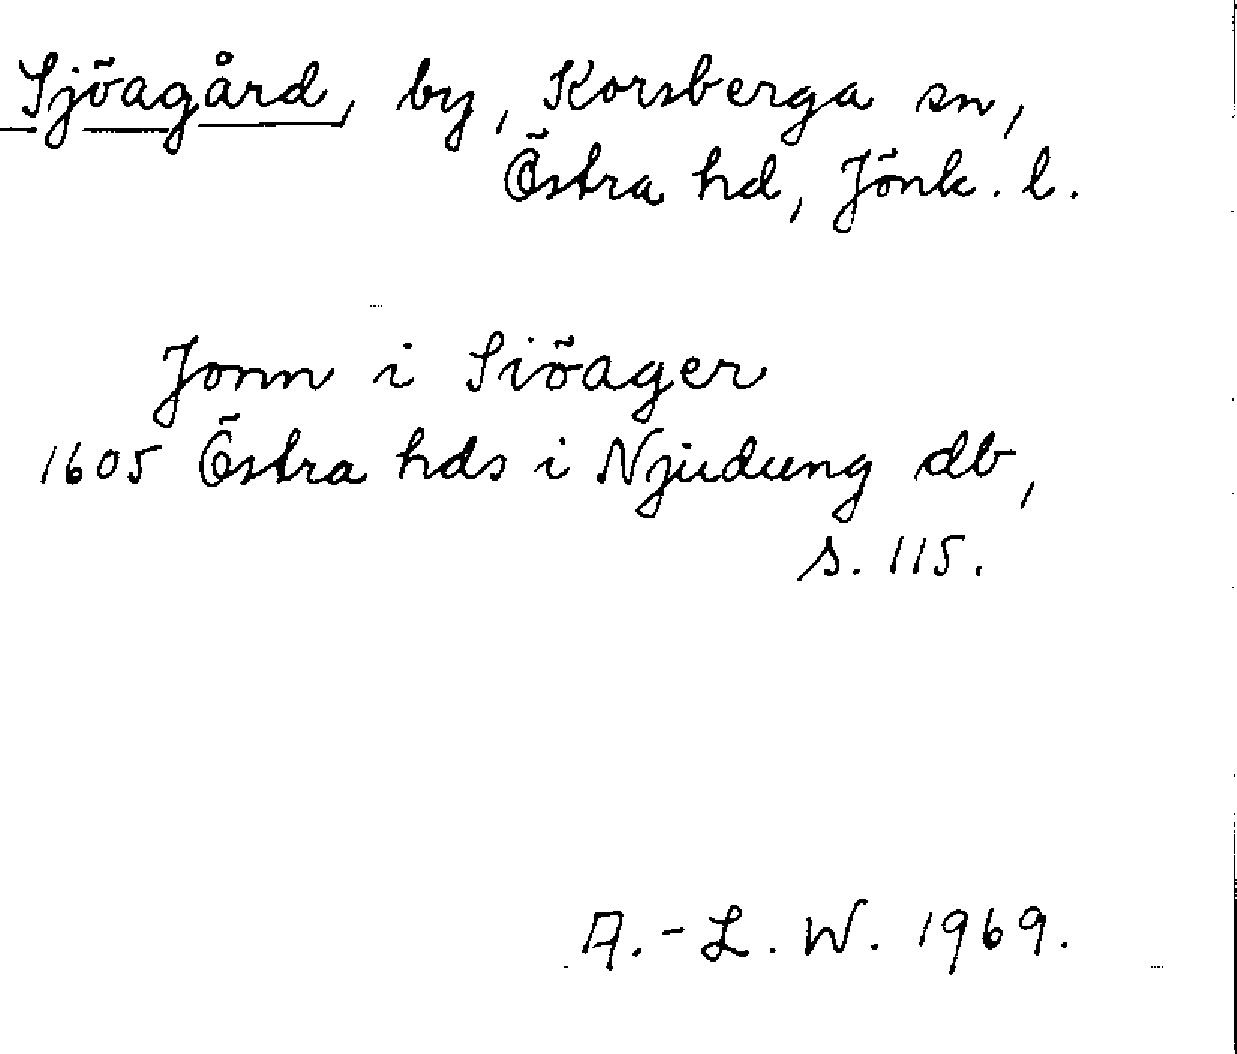 Sjöagård, by, Korsberga sn,
Östra hd, Jönk. l.
Jonn i Siöager
1605 Östra hds i Njudung db,
s. 115.
A.-L. W. 1969.